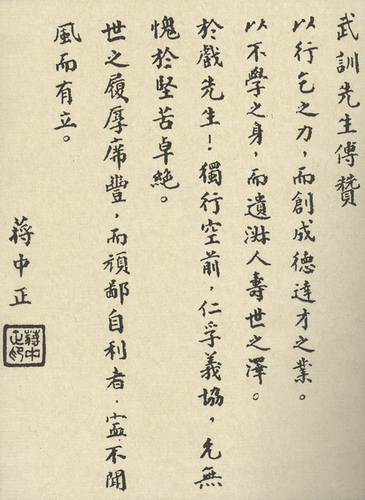 武訓先生傳贊
以行乞之力，而創成德達才之業。
以不學之身，而遺淑人壽世之澤。
於戲先生！獨行空前，仁孚義協，允無
愧於堅苦卓絶。
世之履厚席豐，而頑鄙自利者，盍不聞
風而有立。
蔣中正
蔣中正印